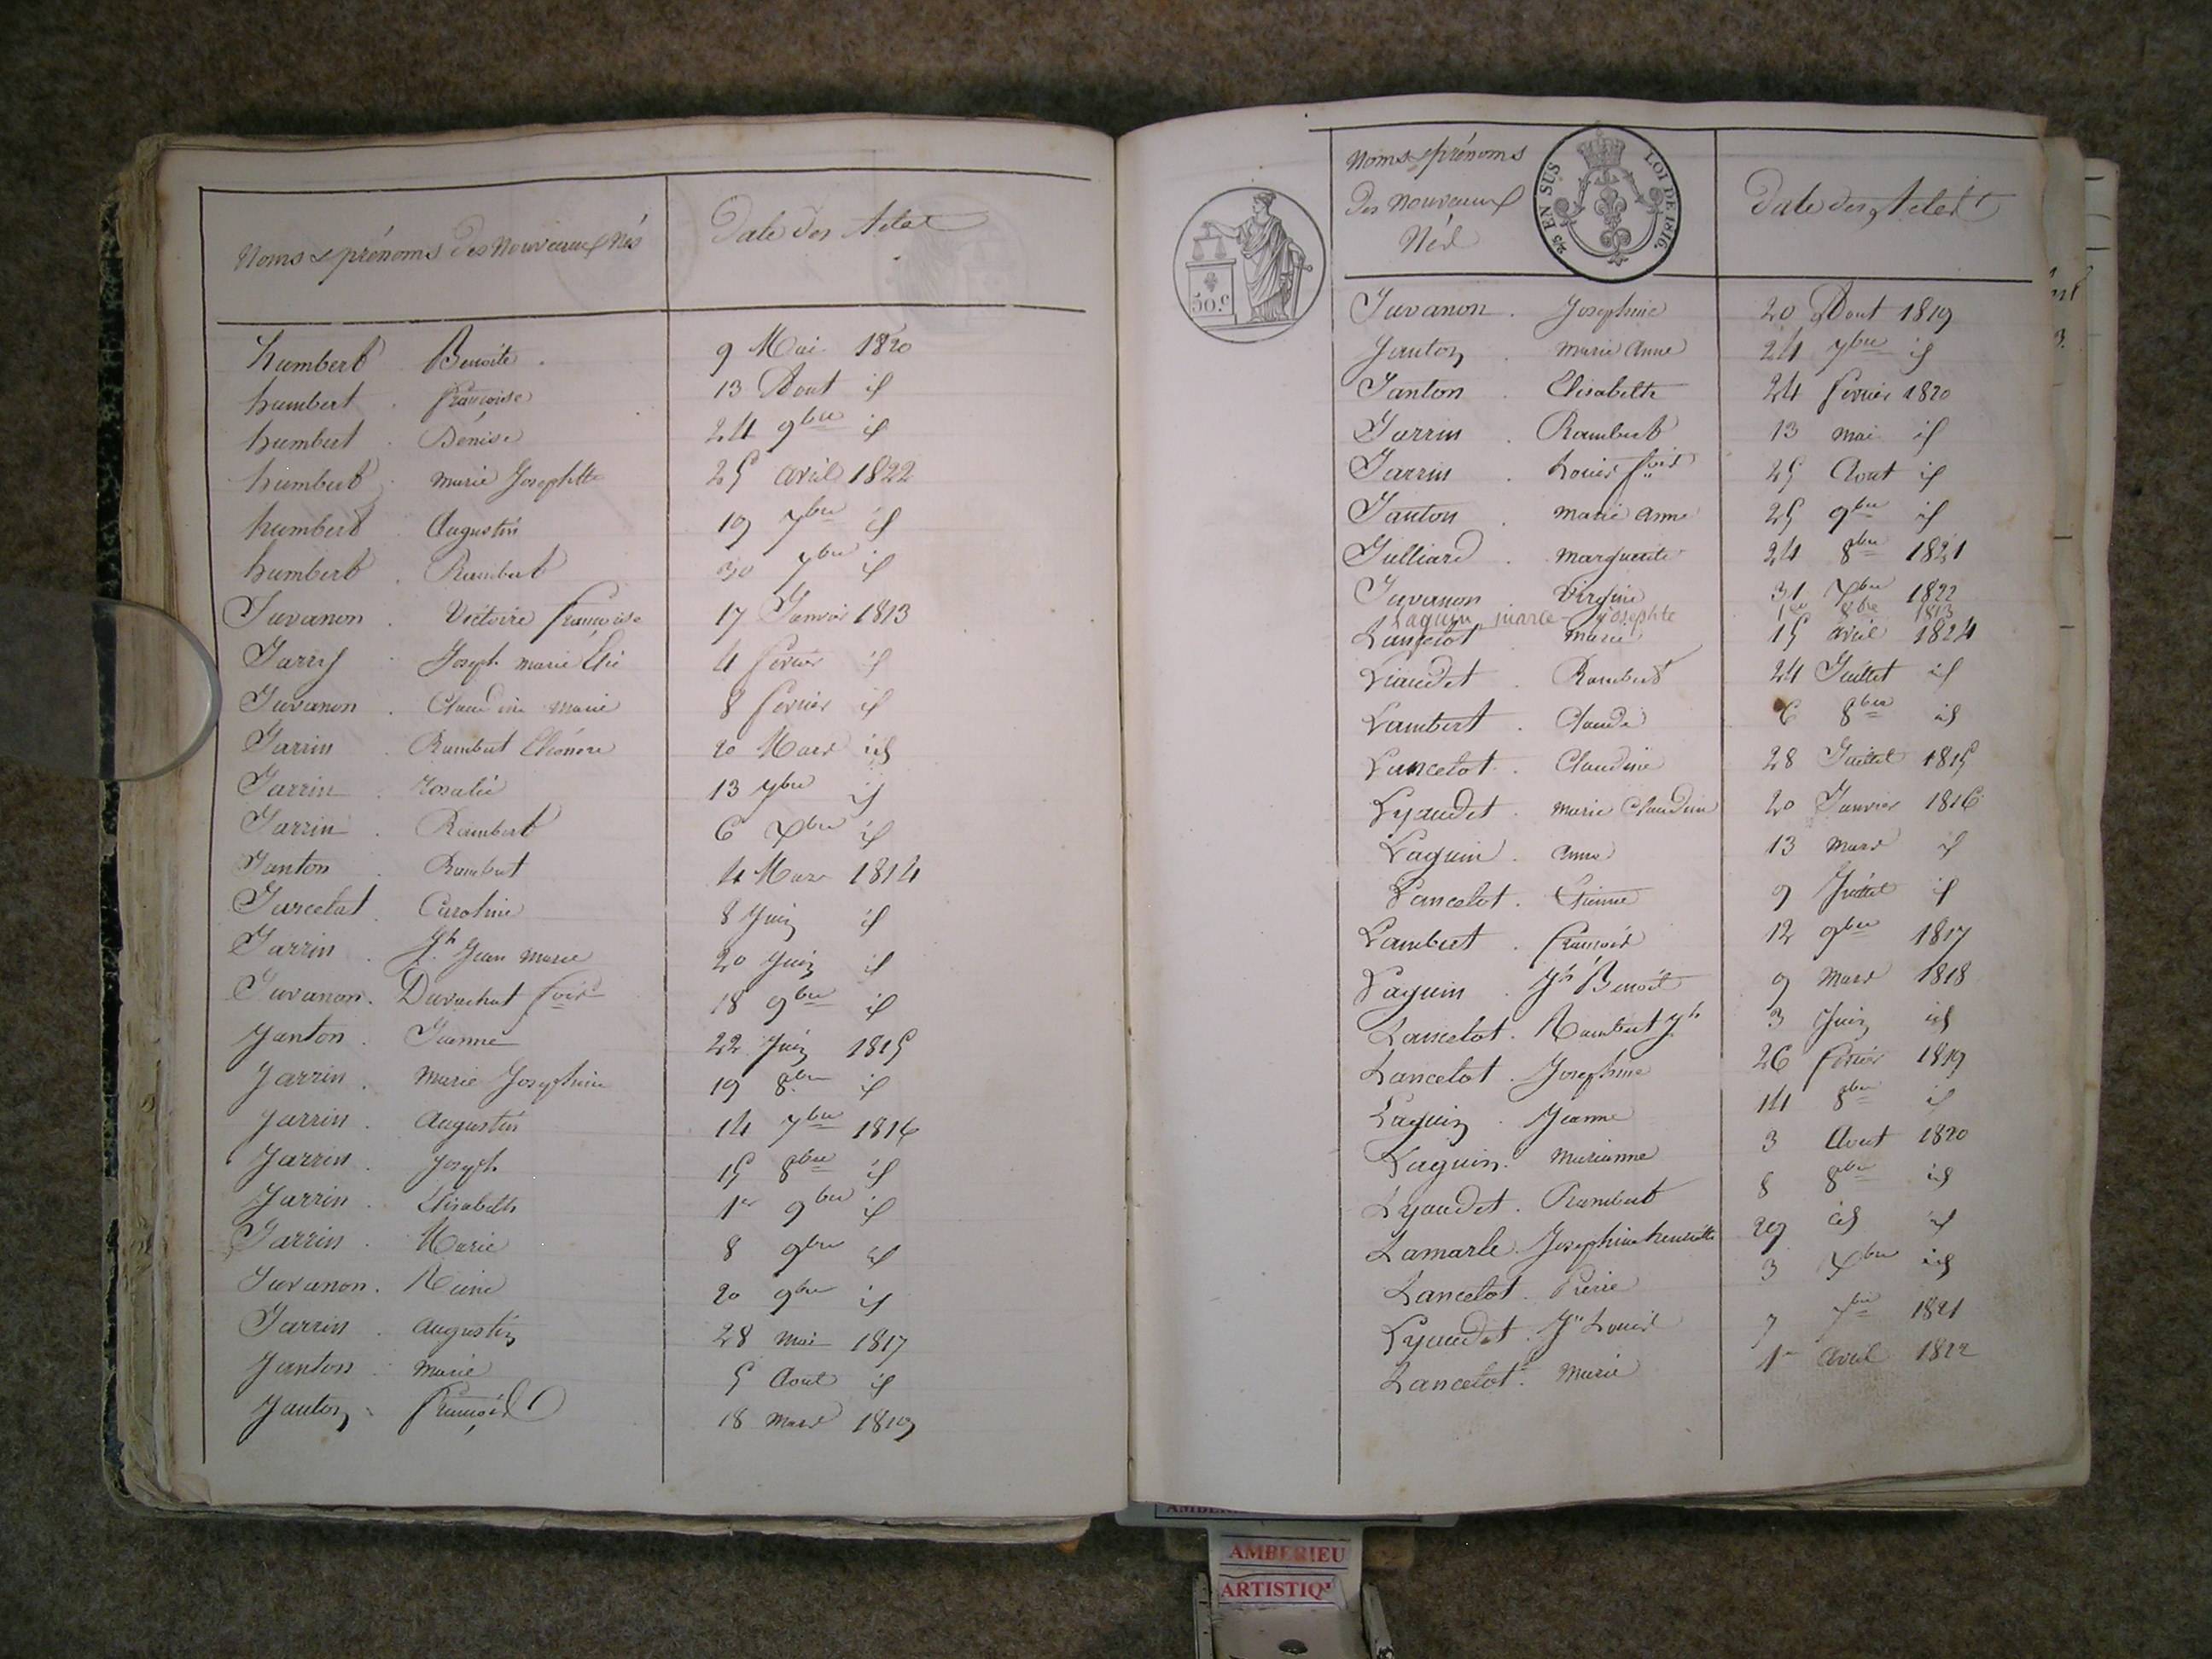 Noms & prénoms des Nouveaux Nés
Date des Actes
humbert Benoite 9 Mai 1820
humbert françoise 13 Aout id
humbert Dénise 24 9bre id
humbert marie Josephtte 25 avril 1822
humbert Augustin 19 7bre id
humbert Rambert 30 7bre id
Juvanon Victoire françoise 17 Janvier 1813
Jarry Joseph marie Elie 4 fevrier id
Juvanon Claudine marie 8 fevrier id
Jarrin Rambert Eléonore 20 Mars id
Jarrin Rosalie 13 9bre id
Jarrin Rambert 6 Xbre id
Janton Rambert 4 Mars 1814
Jarcelat Caroline 8 Juin id
Jarrin Jh Jean Marie 20 Juin id
Juvanon Duvachat fois 18 9bre id
Janton Jeanne 22 Juin 1815
Jarrin Marie Josephine 19 8bre id
Jarrin Augustin 14 7bre 1816
Jarrin Joseph 15 8bre id
Jarrin Elisabeth 1er 9bre id
Jarrin Marie 8 9bre id
Juvanon Reine 20 9bre id
Jarrin augustin 28 mai 1817
Janton Marie 5 Aout id
Janton François 18 mars 1819
Noms & prénoms
des nouveaux
Nés
2/5 EN SUS LOI DE 1816.
Date des Actes
50.c
Juvanon Josephine 20 Aout 1819
Janton Marie Anne 24 7bre id
Janton Elisabeth 24 fevrier 1820
Jarrin Rambert 13 mai id
Jarrin Louis fois 25 Aout id
Janton marie anne 25 9bre id
Julliard marguerite 24 8bre 1821
Juvanon Virginie 31 Xbre 1822
Laguin, marie-Josephte 1er 8bre 1813
Lancelot marie 15 avril 1824
Liaudet Rambert 24 Juillet id
Lambert Claude 6 8bre id
Lancelot Claudine 28 Juillet 1815
Lyaudet marie Claudine 20 Janvier 1816
Laguin anne 13 mars id
Lancelot Etienne 9 Juillet id
Lambert françois 12 9bre 1817
Laguin Jh Benoit 9 mars 1818
Lancelot Rambert Jh 3 Juin id
Lancelot Josephine 26 fevrier 1819
Laguin Jeanne 14 8bre id
Laguin Marianne 3 Aout 1820
Lyaudet Rambert 8 8bre id
Lamarle Josephine henriette 29 id id
Lancelot Pierre 3 Xbre id
Lyaudet Jn Louis 7 7bre 1821
Lancelot Marie 1er Avril 1822
AMBERIEU
ARTISTIQ